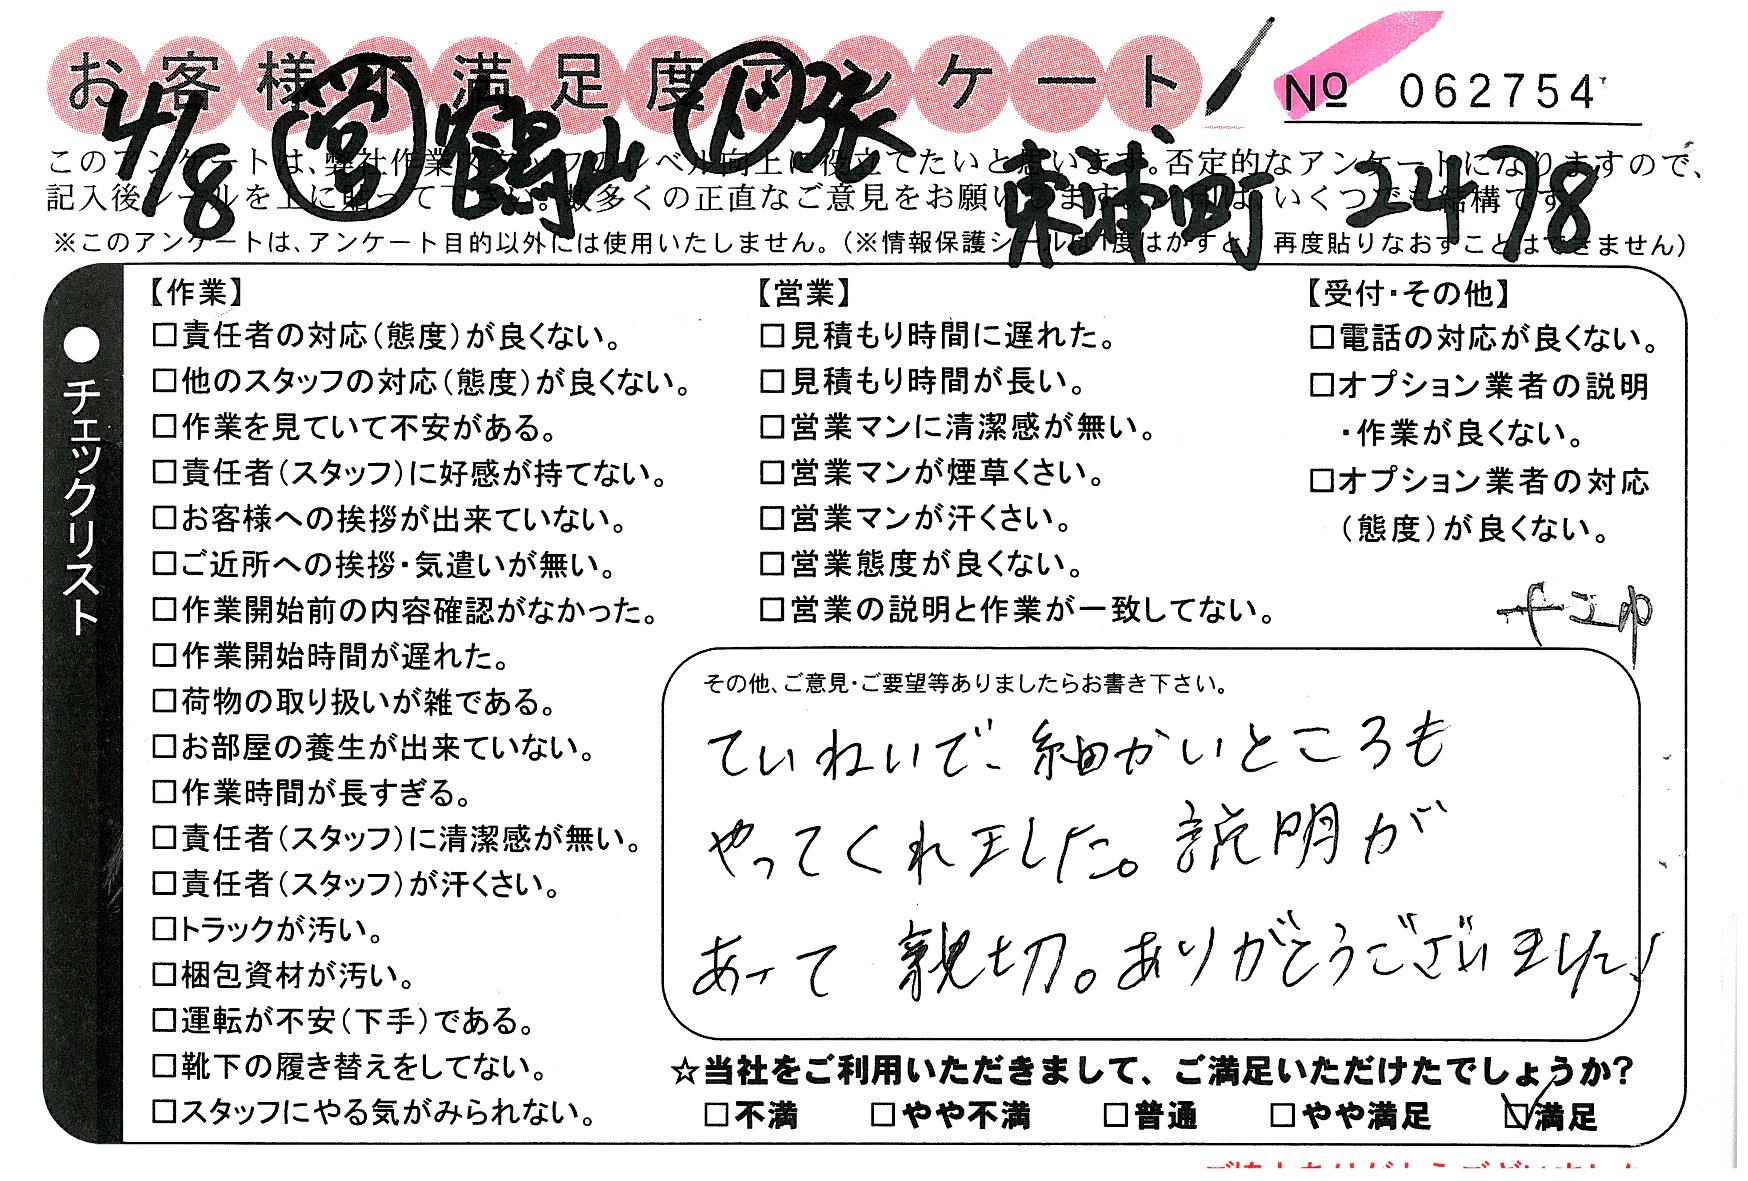 お客様不満足度アンケート
№ 062754
4/8 営 鶴山 下 張
東浦町 2478
このアンケートは、弊社作業スタッフのレベル向上に役立てたいと思います。否定的なアンケートになりますので、
記入後シールを上に貼って下さい。数多くの正直なご意見をお願いします。いくつでも結構です
※このアンケートは、アンケート目的以外には使用いたしません。(※情報保護シールは1度はがすと、再度貼りなおすことはできません)
●チェックリスト
【作業】
□責任者の対応(態度)が良くない。
□他のスタッフの対応(態度)が良くない。
□作業を見ていて不安がある。
□責任者(スタッフ)に好感が持てない。
□お客様への挨拶が出来ていない。
□ご近所への挨拶・気遣いが無い。
□作業開始前の内容確認がなかった。
□作業開始時間が遅れた。
□荷物の取り扱いが雑である。
□お部屋の養生が出来ていない。
□作業時間が長すぎる。
□責任者(スタッフ)に清潔感が無い。
□責任者(スタッフ)が汗くさい。
□トラックが汚い。
□梱包資材が汚い。
□運転が不安(下手)である。
□靴下の履き替えをしてない。
□スタッフにやる気がみられない。
【営業】
□見積もり時間に遅れた。
□見積もり時間が長い。
□営業マンに清潔感が無い。
□営業マンが煙草くさい。
□営業マンが汗くさい。
□営業態度が良くない。
□営業の説明と作業が一致してない。
【受付・その他】
□電話の対応が良くない。
□オプション業者の説明
・作業が良くない。
□オプション業者の対応
(態度)が良くない。
その他、ご意見・ご要望等ありましたらお書き下さい。
ていねいで、細かいところも
やってくれました。説明が
あって 親切。ありがとうございました!
☆当社をご利用いただきまして、ご満足いただけたでしょうか?
□不満 □やや不満 □普通 □やや満足 ☑満足